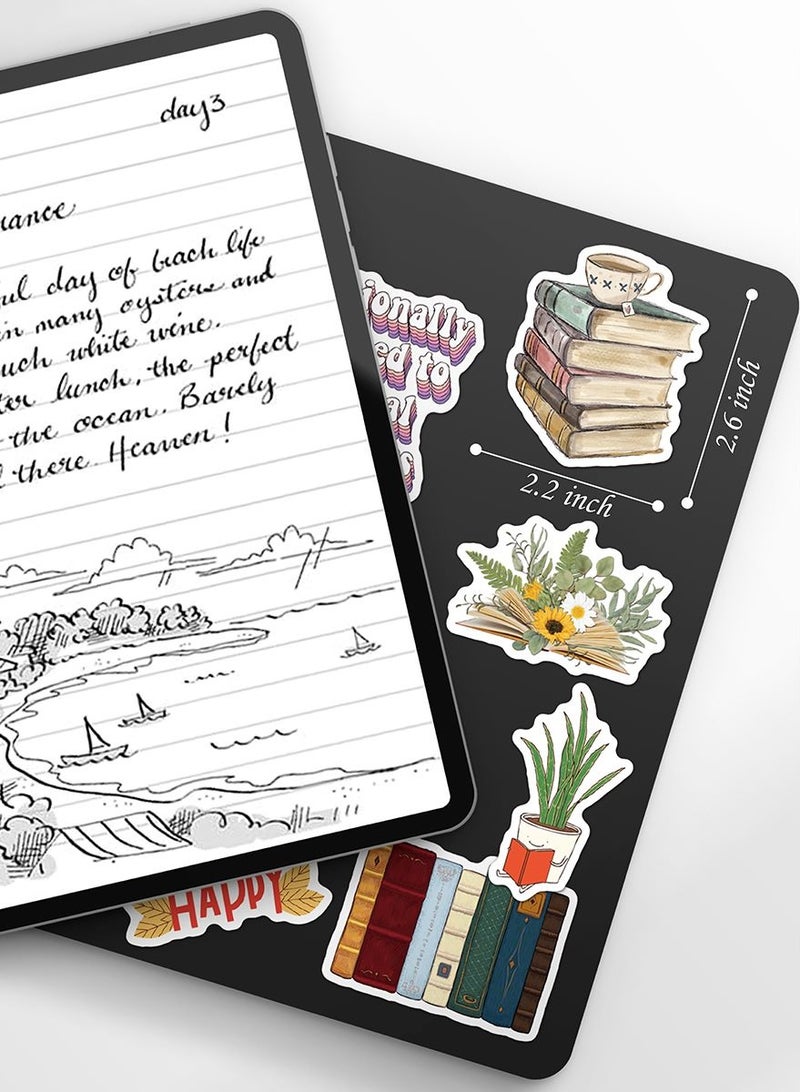 day3
rance
ful day of beach life
in many oysters and
uch white wine.
ter lunch, the perfect
the ocean. Barely
there Heaven!
ionally
ed to
al
2.6 inch
2.2 inch
HAPPY